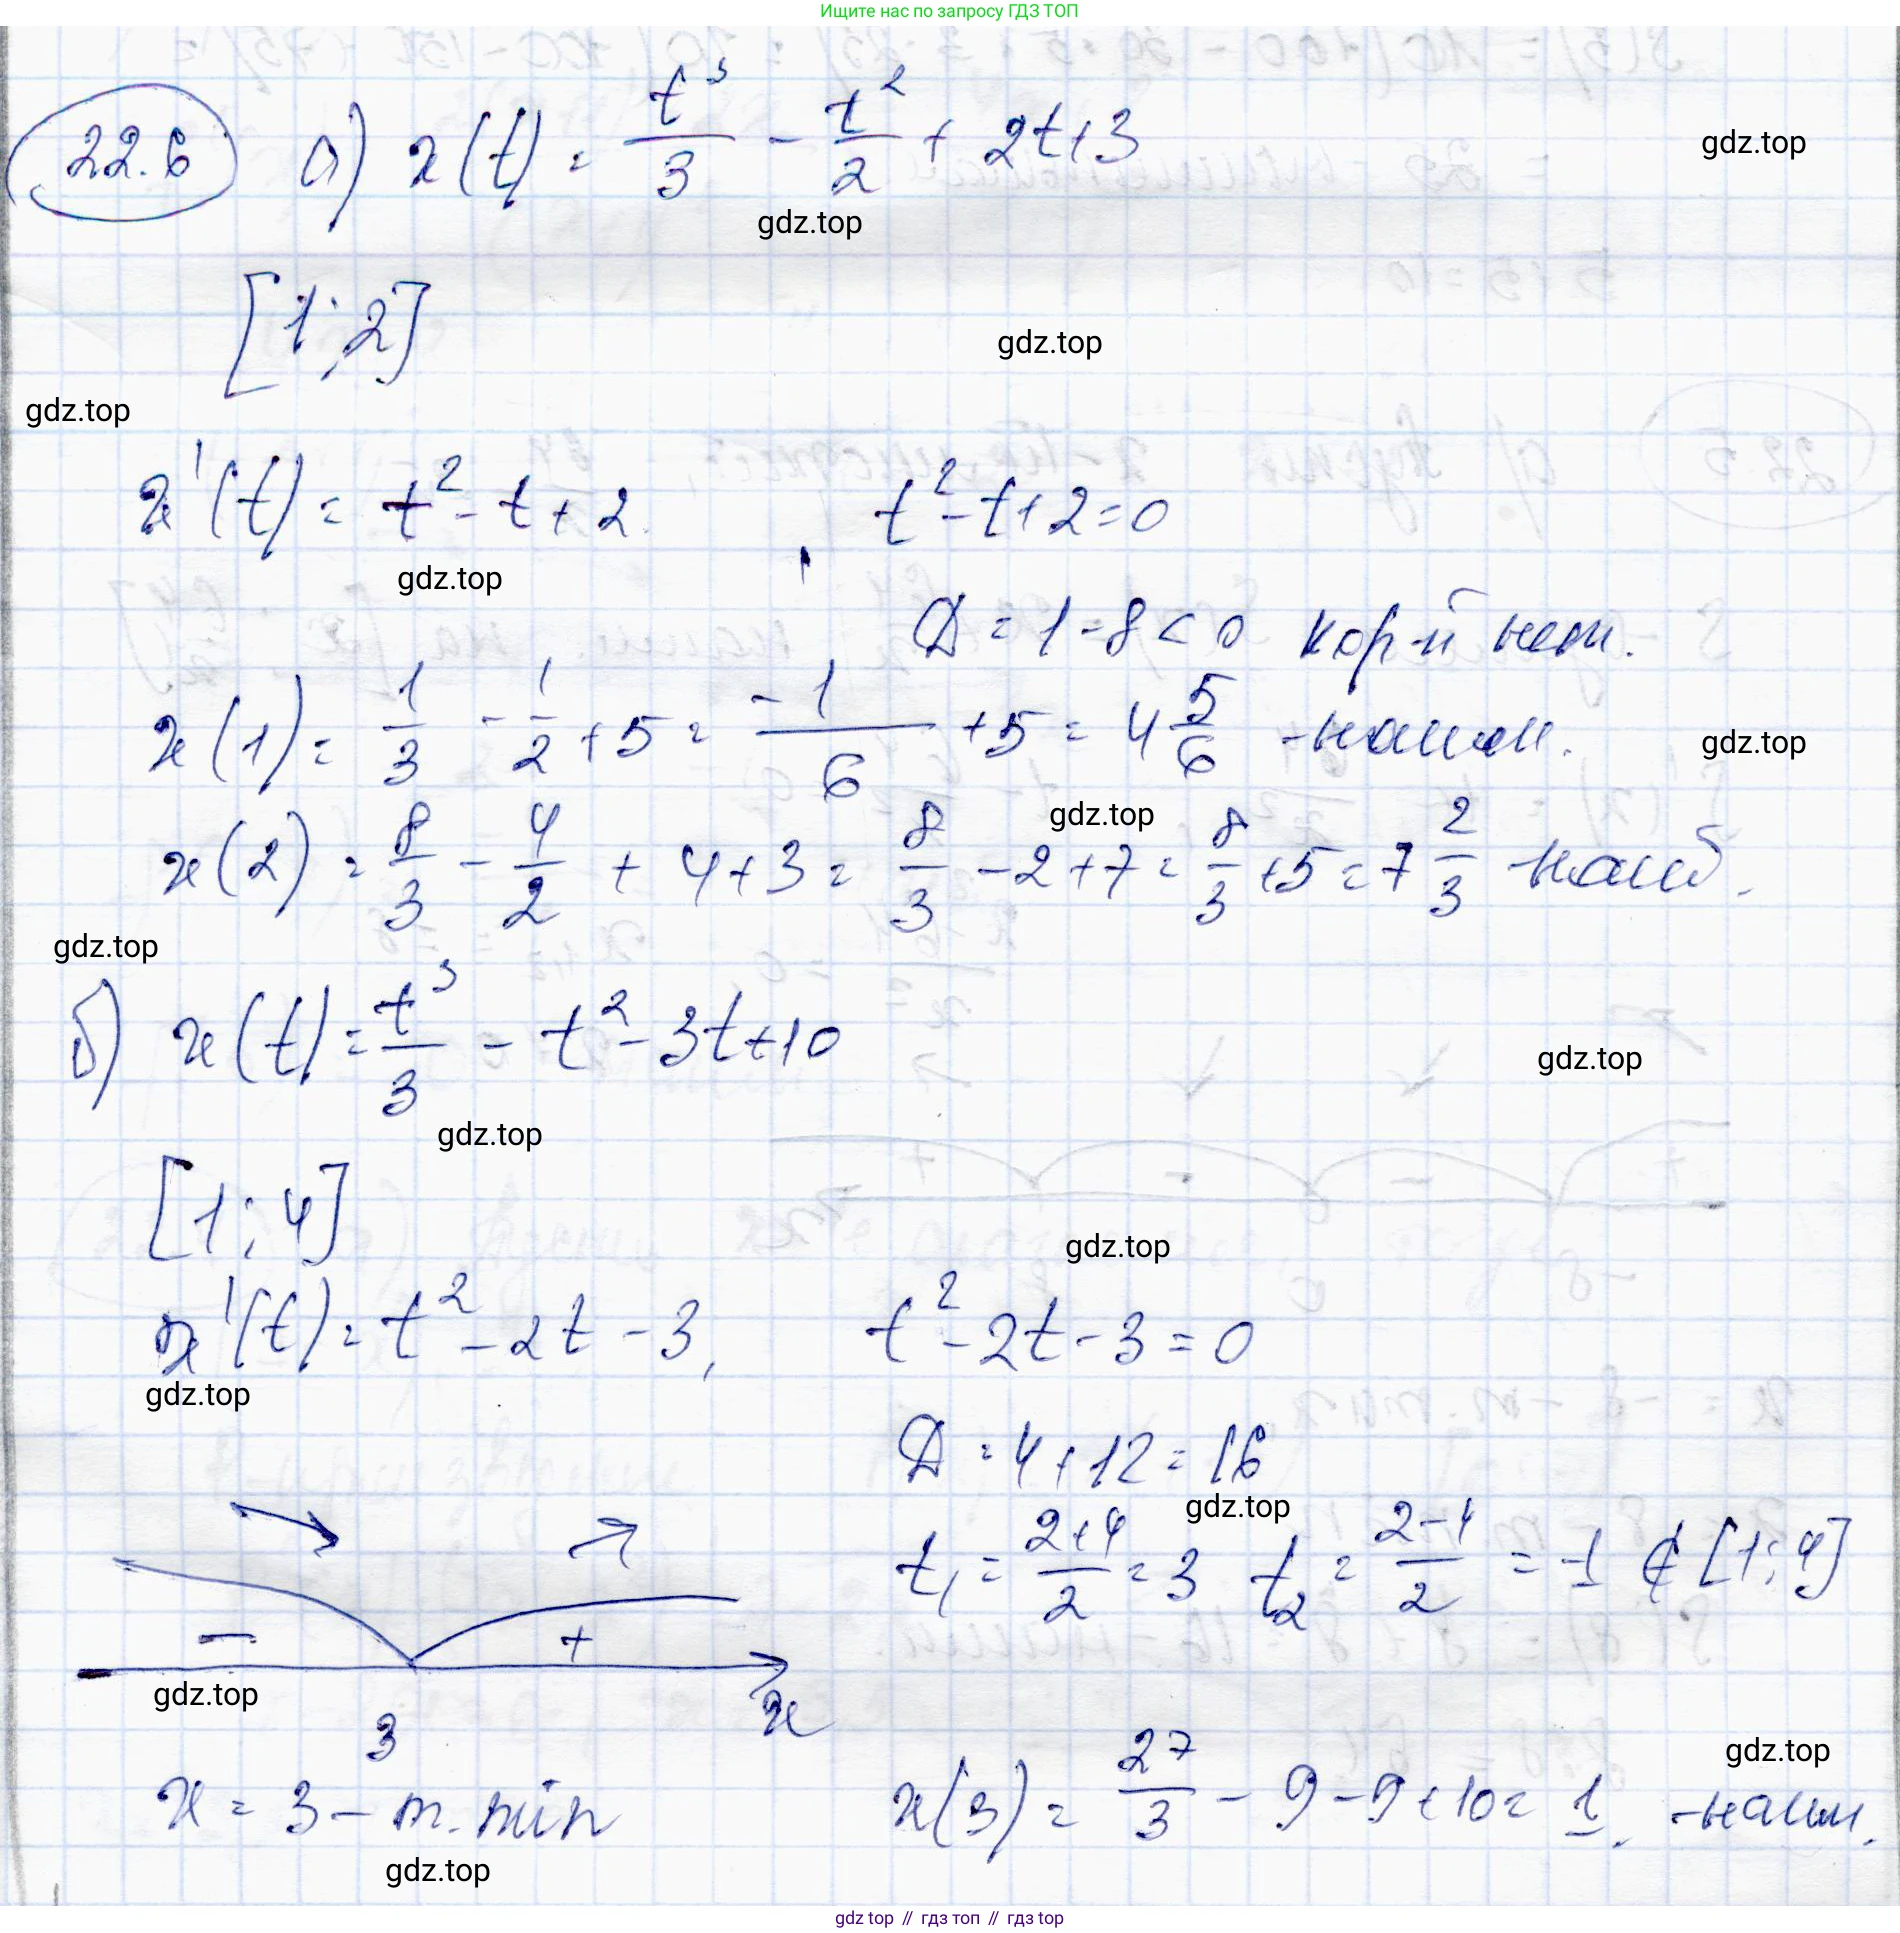 Ищите нас по запросу ГДЗ ТОП
22.6 а) x(t) = t³/3 - t²/2 + 2t+3
gdz.top
gdz.top
[1;2]
gdz.top
gdz.top
x'(t) = t² - t + 2. t² - t + 2 = 0
gdz.top
D = 1 - 8 < 0 кор-й нет.
x(1) = 1/3 - 1/2 + 5 = -1/6 + 5 = 4 5/6 - наим.
gdz.top
gdz.top
x(2) = 8/3 - 4/2 + 4 + 3 = 8/3 - 2 + 7 = 8/3 + 5 = 7 2/3 - наиб.
gdz.top
б) x(t) = t³/3 - t² - 3t + 10
gdz.top
gdz.top
[1; 4]
gdz.top
x'(t) = t² - 2t - 3, t² - 2t - 3 = 0
gdz.top
D = 4 + 12 = 16
gdz.top
t₁ = (2+4)/2 = 3 t₂ = (2-4)/2 = -1 ∉ [1; 4]
- +
gdz.top
3 x
gdz.top
x = 3 - т. min x(3) = 27/3 - 9 - 9 + 10 = 1. - наим.
gdz.top
gdz top // гдз топ // гдз top